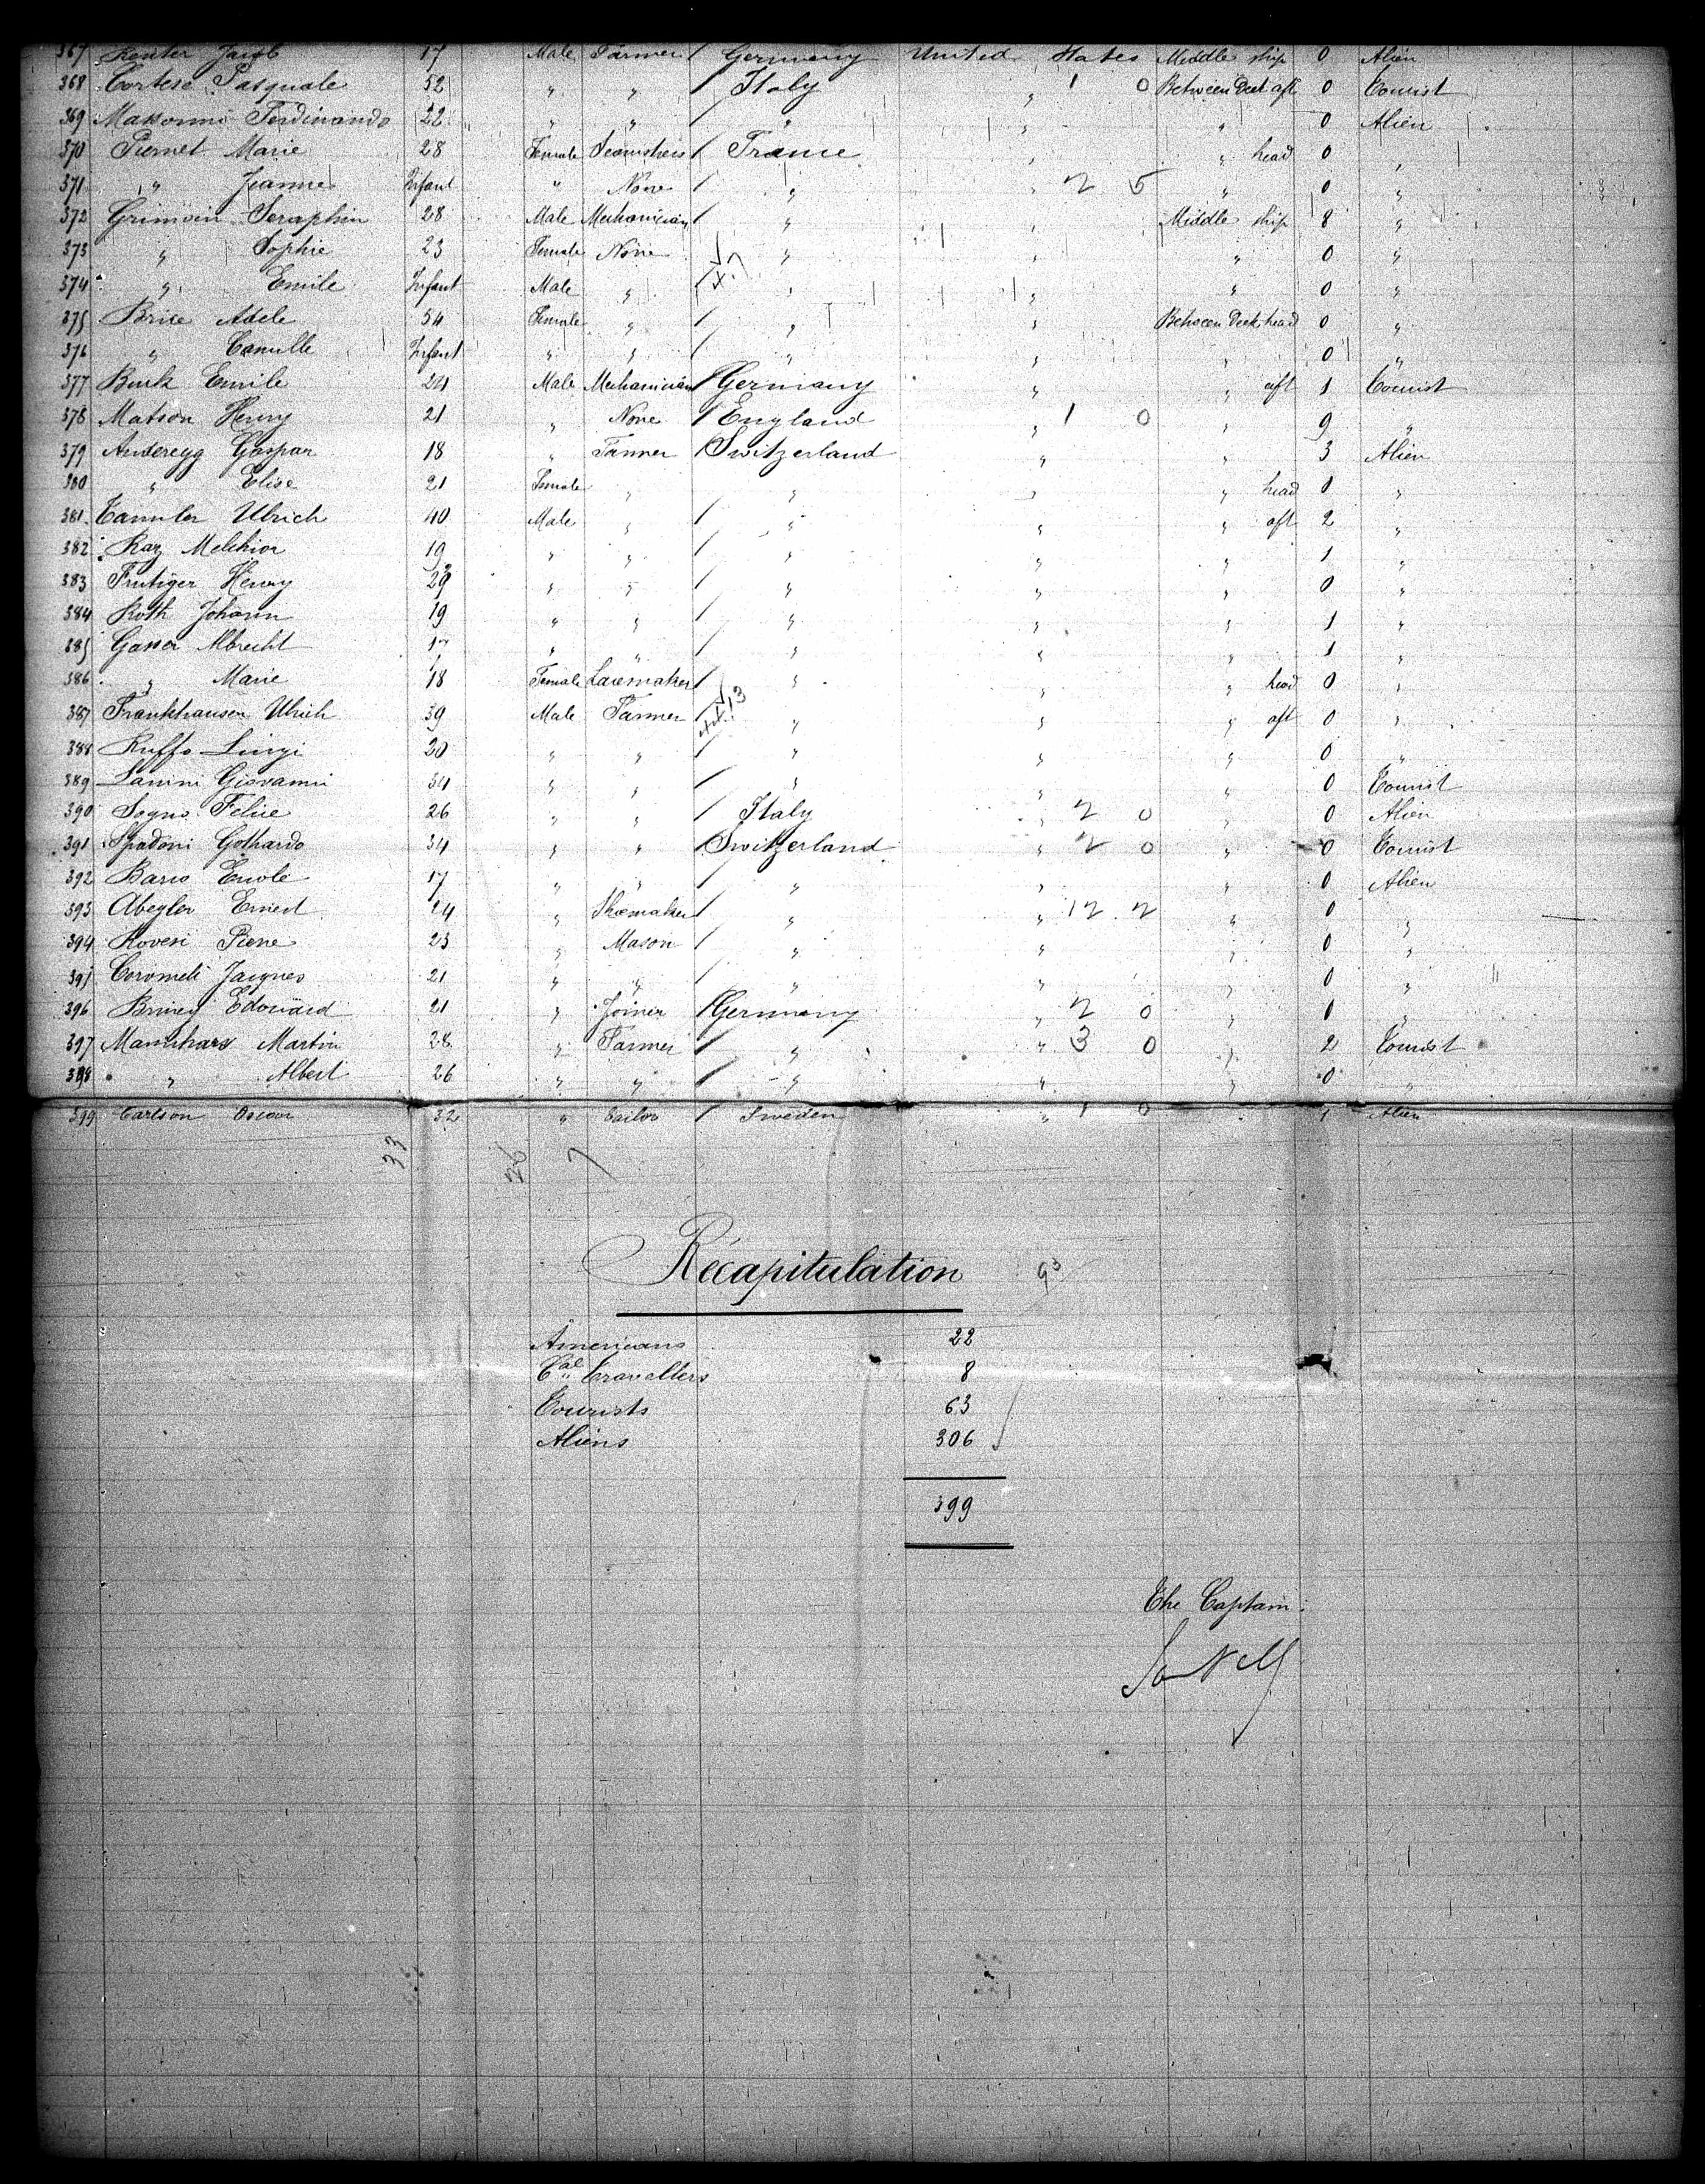 367 Reuter Jacob 17 Male Farmer / Germany United States Middle ship 0 Alien
368 Cortese Pasquale 52 " " / Italy " 1 0 Between Deck aft 0 Tourist
369 Massonni Ferdinando 22 " " / " " " 0 Alien
370 Piernet Marie 28 Female Seamstress / France " " head 0 "
371 " Jeanne Infant " None / " " 2 5 " 0 "
372 Grimoin Seraphin 28 Male Mechanician / " " Middle ship 8 "
373 " Sophie 23 Female None " " " 0 "
374 " Emile Infant Male " / " " " 0 "
375 Brice Adele 54 Female " / " " Between Deck head 0 "
376 " Camille Infant " " / " " " 0 "
377 Burk Emile 24 Male Mechanician / Germany " " aft 1 Tourist
378 Matson Henry 21 " None / England " 1 0 " 9 "
379 Anderegg Gaspar 18 " Farmer / Switzerland " " 3 Alien
380 " Elise 21 Female " " " " head 1 "
381 Tanniler Ulrich 40 Male " / " " " aft 2 "
382 Raz Melchior 19 " " / " " " 1 "
383 Frutiger Henry 29 " " / " " " 0 "
384 Roth Johann 19 " " / " " " 1 "
385 Gasser Albrecht 17 " " / " " " 1 "
386 " Marie 18 Female Lacemaker / " " " head 0 "
387 Frankhauser Ulrich 39 Male Farmer / " " " aft 0 "
388 Ruffo Luigi 20 " " / " " " 0 "
389 Lanini Giovanni 34 " " / " " " 0 Tourist
390 Sogno Felice 26 " " / Italy " 2 0 " 0 Alien
391 Spadoni Gothardo 34 " " / Switzerland " 2 0 " 0 Tourist
392 Barro Ercole 17 " " / " " " 0 Alien
393 Abegler Ernest 24 " Shoemaker / " " 12 2 " 0 "
394 Roveri Pierre 23 " Mason / " " " 0 "
395 Coromeli Jacques 21 " " / " " " 0 "
396 Briney Edouard 21 " Joiner / Germany " 2 0 " 1 "
397 Manichars Martin 28 " Farmer / " " 3 0 " 2 Tourist
398 " Albert 26 " " / " " " 0 "
399 Carlson Oscar 32 " Tailor / Sweden " 1 0 " 1 Alien
33 26 7
Récapitulation 93
Americans 22
Cal Travellers 8
Tourists 63
Aliens 306
399
The Captain: